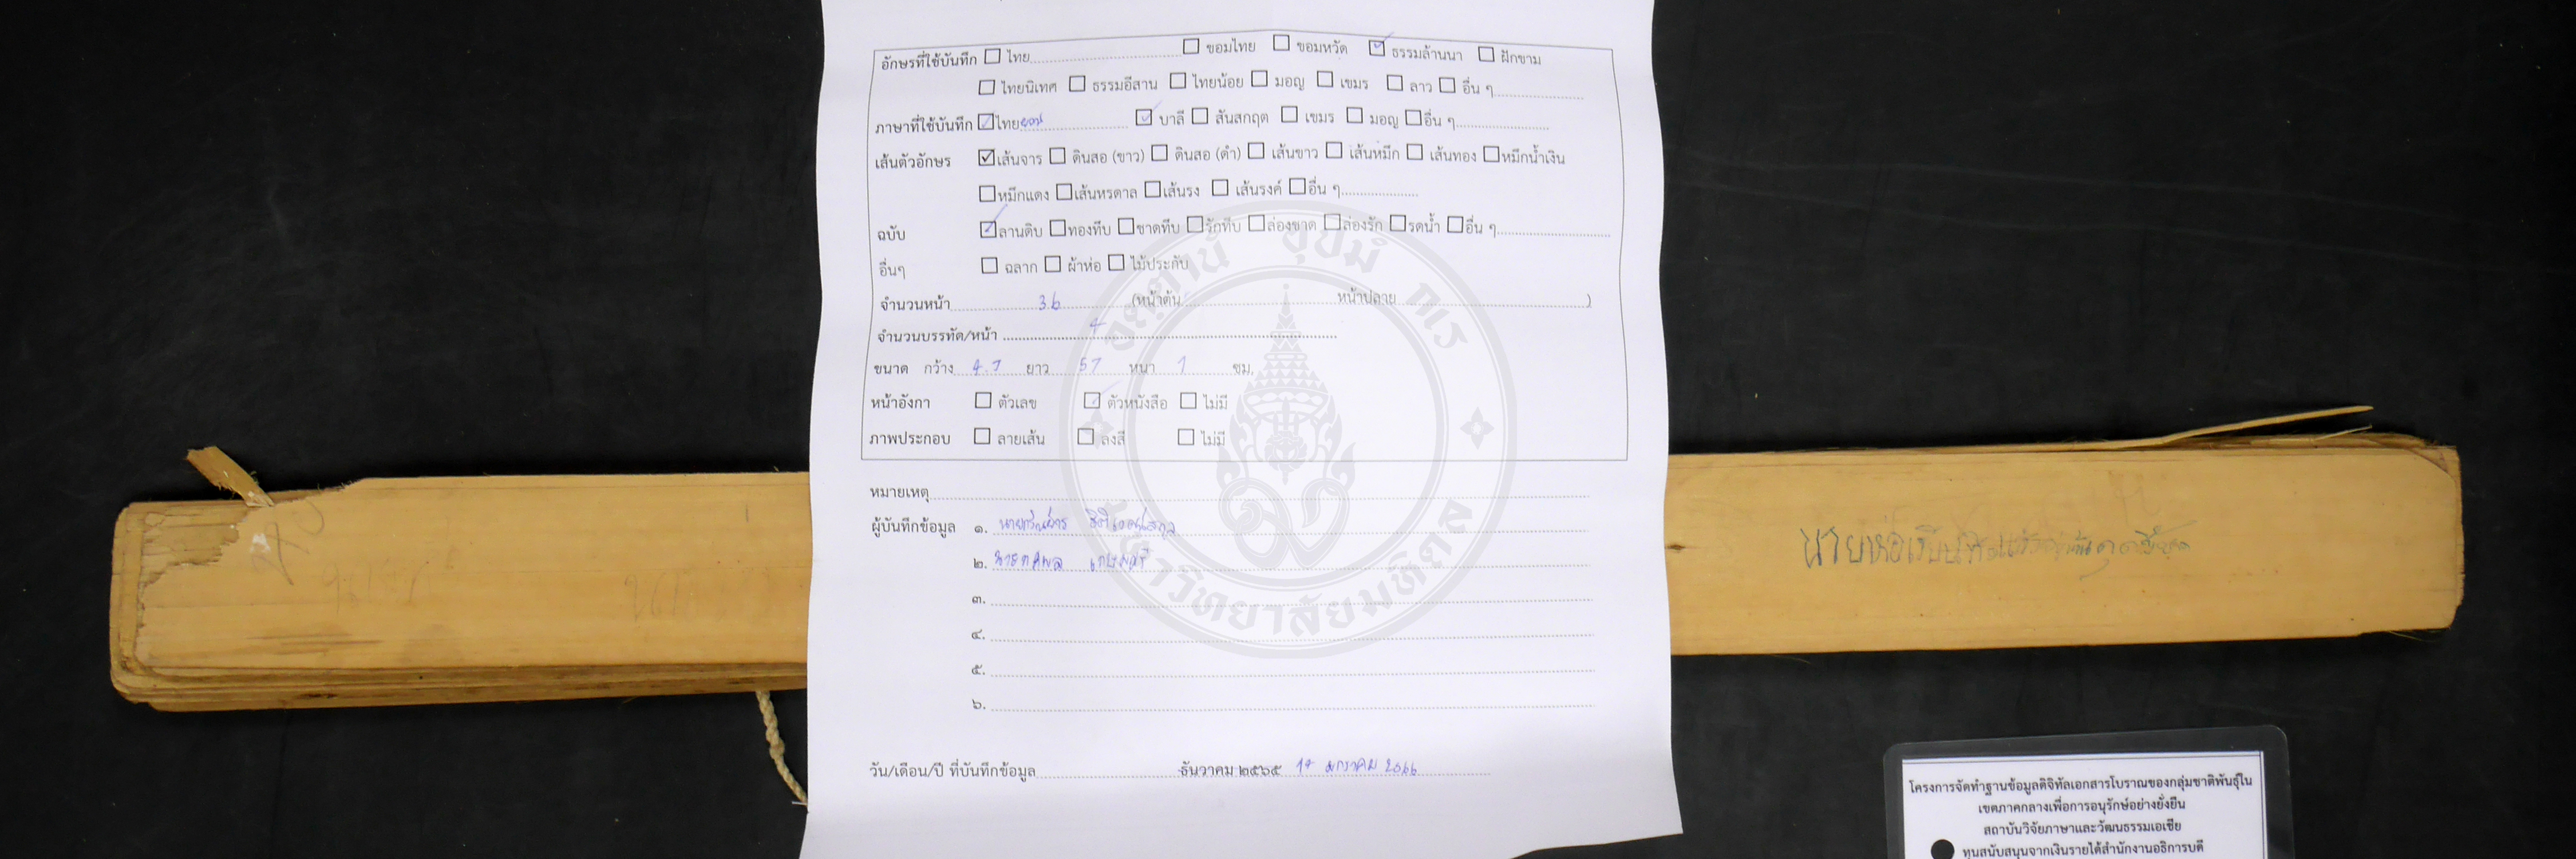 อักษรที่ใช้บันทึก ☐ ไทย.......... ☐ ขอมไทย ☐ ขอมหวัด ☑ ธรรมล้านนา ☐ ฝักขาม
☐ ไทยนิเทศ ☐ ธรรมอีสาน ☐ ไทยน้อย ☐ มอญ ☐ เขมร ☐ ลาว ☐ อื่น ๆ..........
ภาษาที่ใช้บันทึก ☑ ไทยยวน.......... ☑ บาลี ☐ สันสกฤต ☐ เขมร ☐ มอญ ☐ อื่น ๆ..........
เส้นตัวอักษร ☑ เส้นจาร ☐ ดินสอ (ขาว) ☐ ดินสอ (ดำ) ☐ เส้นขาว ☐ เส้นหมึก ☐ เส้นทอง ☐ หมึกน้ำเงิน
☐ หมึกแดง ☐ เส้นหรดาล ☐ เส้นรง ☐ เส้นรงค์ ☐ อื่น ๆ..........
ฉบับ ☑ ลานดิบ ☐ ทองทึบ ☐ ชาดทึบ ☐ รักทึบ ☐ ล่องชาด ☐ ล่องรัก ☐ รดน้ำ ☐ อื่น ๆ..........
อื่นๆ ☐ ฉลาก ☐ ผ้าห่อ ☐ ไม้ประกับ
จำนวนหน้า 36 (หน้าต้น.......... หน้าปลาย..........)
จำนวนบรรทัด/หน้า 4
ขนาด กว้าง 4.7 ยาว 57 หนา 1 ซม.
หน้าอังกา ☐ ตัวเลข ☑ ตัวหนังสือ ☐ ไม่มี
ภาพประกอบ ☐ ลายเส้น ☐ ลงสี ☐ ไม่มี
หมายเหตุ..........
ผู้บันทึกข้อมูล ๑.
๒. นายทศพล
๓.
๔.
๕.
๖.
วัน/เดือน/ปี ที่บันทึกข้อมูล.......... ธันวาคม ๒๕๖๕ 17 มกราคม 2566
มหาวิทยาลัยมหิดล
อตฺตานํ อุปมํ กเร
โครงการจัดทำฐานข้อมูลดิจิทัลเอกสารโบราณของกลุ่มชาติพันธุ์ใน
เขตภาคกลางเพื่อการอนุรักษ์อย่างยั่งยืน
สถาบันวิจัยภาษาและวัฒนธรรมเอเชีย
ทุนสนับสนุนจากเงินรายได้สำนักงานอธิการบดี